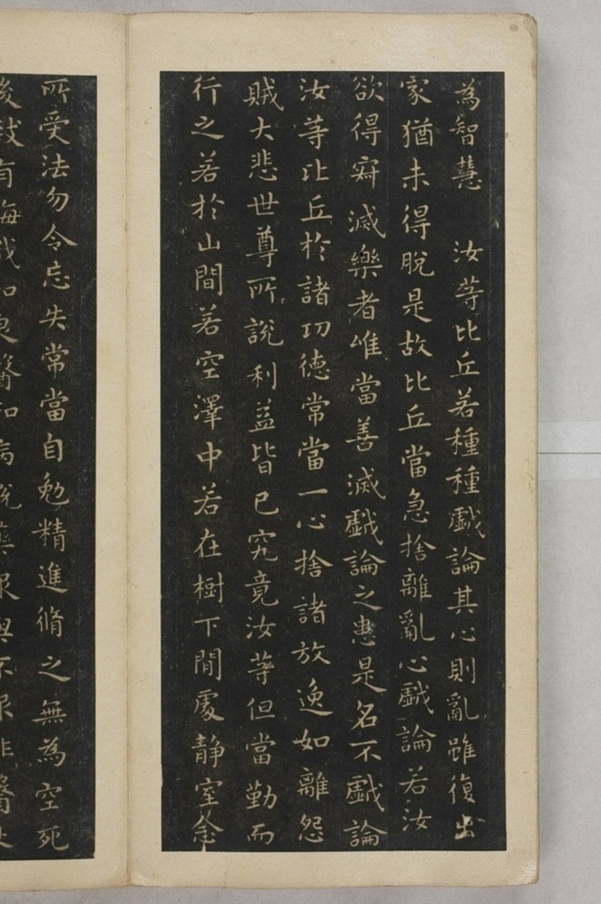 為智慧　汝等比丘若種種戲論其心則亂雖復出
家猶未得脫是故比丘當急捨離亂心戲論若汝
欲得寂滅樂者唯當善滅戲論之患是名不戲論
汝等比丘於諸功德常當一心捨諸放逸如離怨
賊大悲世尊所說利益皆已究竟汝等但當勤而
行之若於山間若空澤中若在樹下閒處靜室念
所受法勿令忘失常當自勉精進脩之無為空死
後致有悔我如良醫知病說藥服與不服非醫